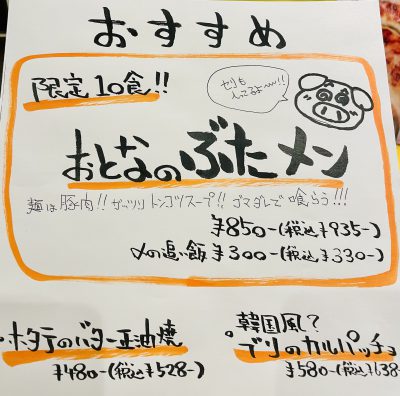 おすすめ
限定10食!!
セリも
入ってるよ〜!!
おとなのぶたメン
麺は豚肉!! ガッツリトンコツスープ!! ゴマダレで喰らう!!!
¥850-(税込¥935-)
〆の追い飯¥300-(税込¥330-)
・ホタテのバター正油焼
¥480-(税込¥528-)
韓国風?
・ブリのカルパッチョ
¥580-(税込¥638-)